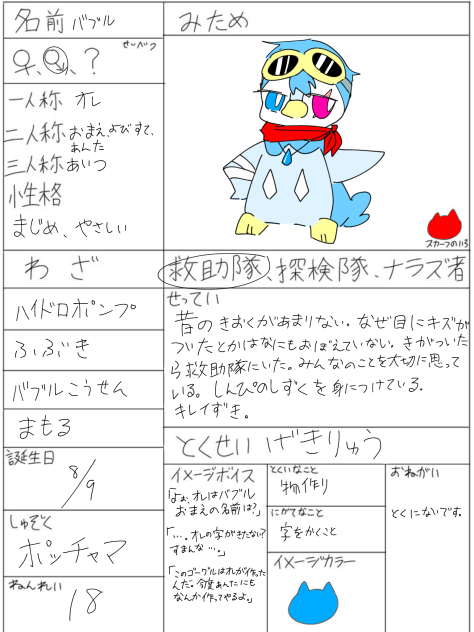 名前 バブル
せいべつ
♀、♂、?
一人称 オレ
二人称 おまえ、よびすて、
あんた
三人称 あいつ
性格
まじめ、やさしい
みため
スカーフのいろ
わざ
ハイドロポンプ
ふぶき
バブルこうせん
まもる
誕生日
8/9
しゅぞく
ポッチャマ
ねんれい
18
救助隊、探検隊、ナラズ者
せってい
昔のきおくがあまりない。なぜ目にキズが
ついたとかはなにもおぼえていない。きがついた
ら救助隊にいた。みんなのことを大切に思って
いる。しんぴのしずくを身につけている。
キレイずき。
とくせい げきりゅう
イメージボイス
「よぉ、オレはバブル
おまえの名前は?」
「…。オレの字がきたない?
すまんな…。」
「このゴーグルはオレが作ったん
んだ。今度あんたにも
なんか作ってやるよ。」
とくいなこと
物作り
にがてなこと
字をかくこと
イメージカラー
おねがい
とくにないです。